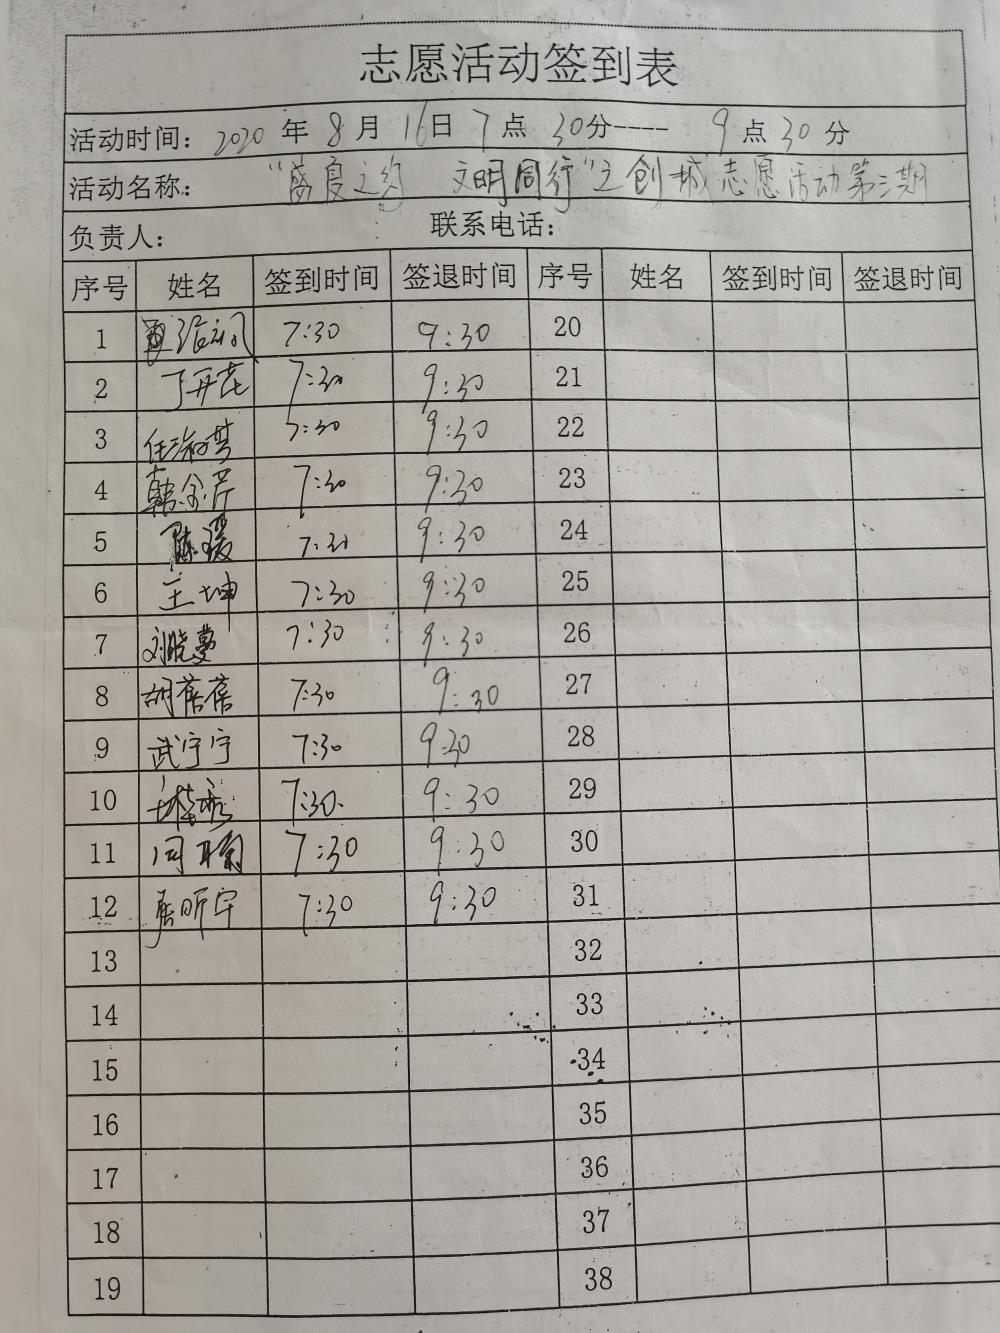 志愿活动签到表
活动时间：2020 年 8 月 16日 7 点 30分---- 9 点 30 分
活动名称：“盛夏之约 文明同行”之创城志愿活动第三期
负责人： 联系电话：
序号 姓名 签到时间 签退时间 序号 姓名 签到时间 签退时间
1 7:30 9:30 20
2 丁开花 7:30 9:30 21
3 任淑芳 7:30 9:30 22
4 韩金芹 7:30 9:30 23
5 陈瑷 7:30 9:30 24
6 王坤 7:30 9:30 25
7 刘晓蔓 7:30 9:30 26
8 胡蓓蓓 7:30 9:30 27
9 武宁宁 7:30 9:30 28
10 7:30 9:30 29
11 闫 7:30 9:30 30
12 昕宇 7:30 9:30 31
13 32
14 33
15 34
16 35
17 36
18 37
19 38